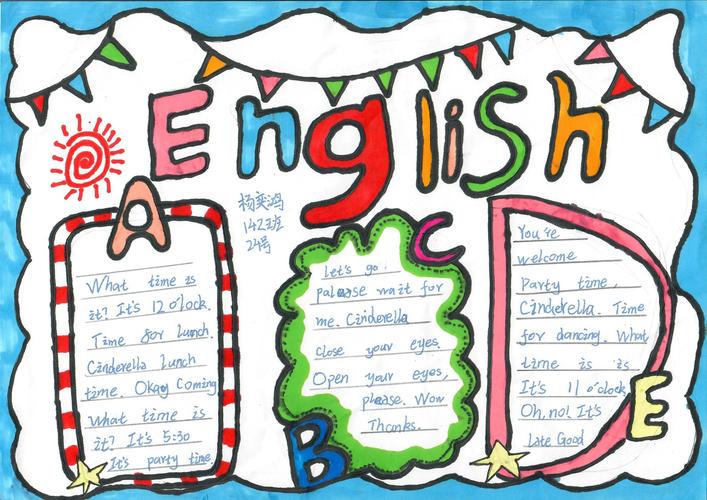 English
杨奕鸿
142班
24号
A
What time is
it? It's 12 o'clock.
Time for lunch.
Cinderella lunch
time. Okay Coming
What time is
it? It's 5:30
It's party time
C
Let's go.
palease wait for
me. Cinderella
close your eyes.
Open your eyes,
please. Wow
Thanks.
B
D
You're
welcome
Party time,
Cinderella. Time
for dancing. What
time is is
It's 11 o'clock
Oh, no! It's
Late Good
E